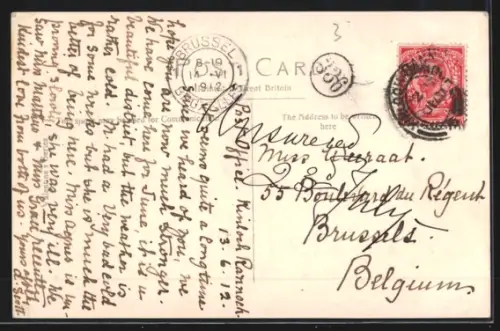 Post Office. Kinloch Rannoch.
13.6.12.
It seems quite a long time
since we heard of you, we
hope you are now much stronger.
We have come here for June, it is a
beautiful district, but the weather is
rather cold. M. had a very bad cold
for some weeks but she is much the
better of being here. Miss Agnes is im-
proving slowly, she was very ill. We
saw Miss Martha & Miss Grace recently.
Kindest love from both of us. Yours aff
Scott
BRUXELLES
8-19
14 VI
1912
BRUSSEL
CAR
Great Britain
The Address to be
here
for Communication
336
3
Miss
55 Boulevard du Régent
Brussels.
Belgium.